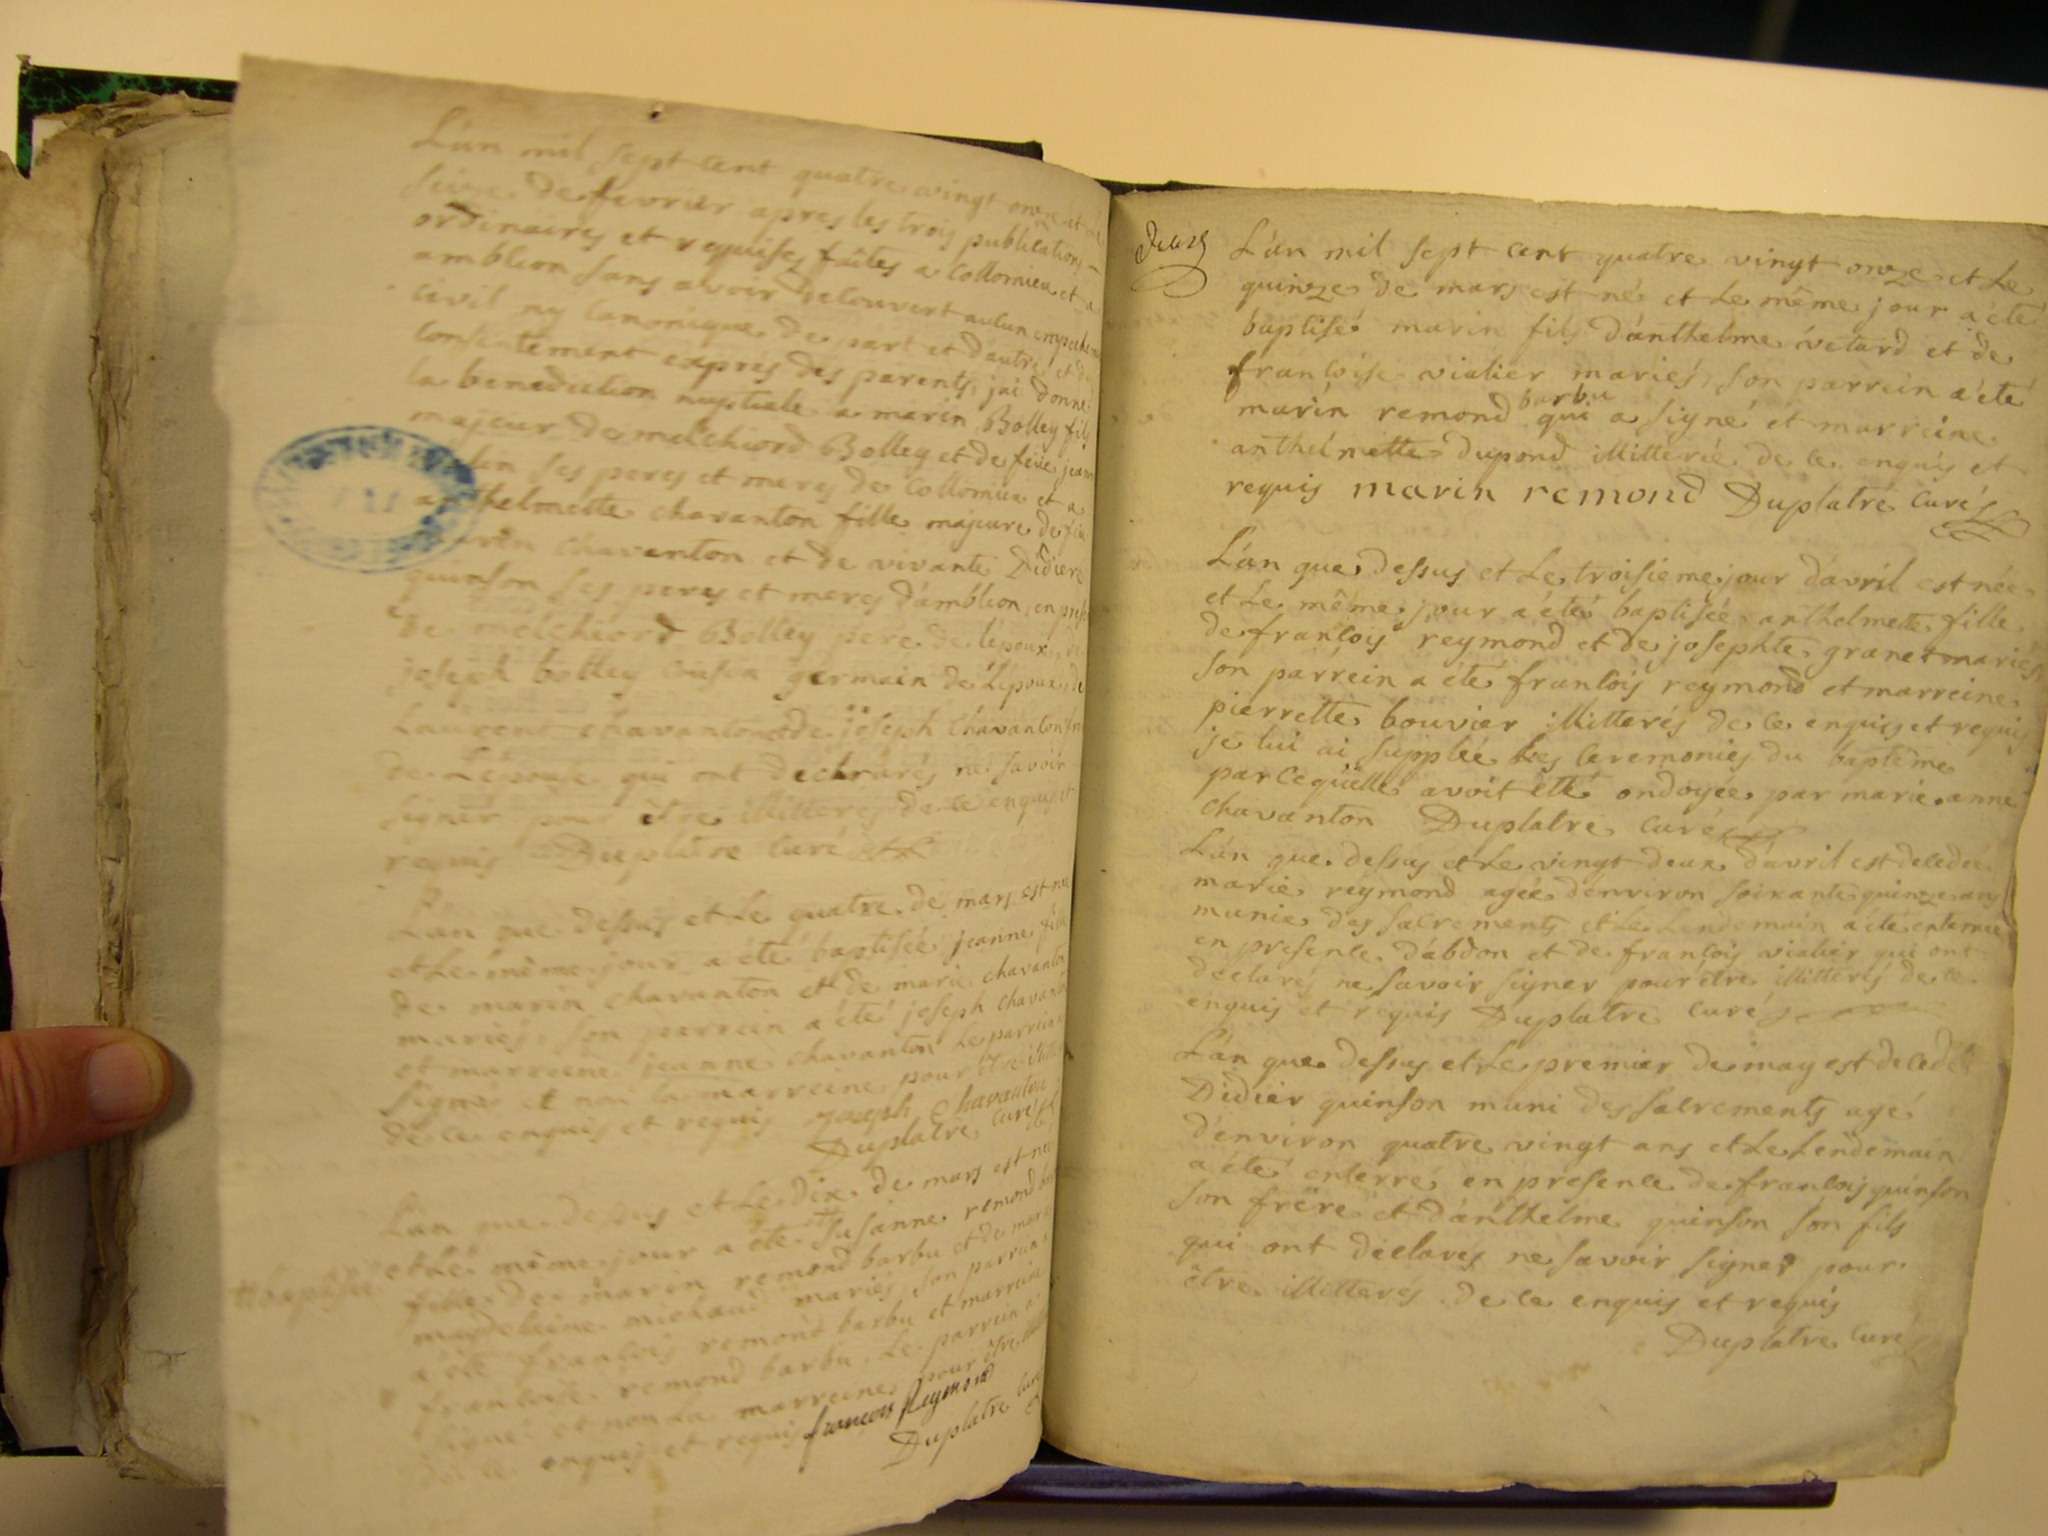 L'an mil sept cent quatre vingt onze et le
seize de fevrier apres les trois publications
ordinaires et requises faites a Collomieu et a
amblion sans avoir decouvert aucun empechem
civil ny canonique de part et d'autre et du
consentement exprés des parents, jai donné
la benediction nuptiale a marin Bolley fils
majeur de melchiord Bolley et de feüe jeanne
ses peres et meres de Collomieu et a
anthelmette chavanton fille majeure de feu
chavanton et de vivante Didiere
quinson ses peres et meres d'amblion, en prese
de melchiord Bolley pere de lepoux, de
joseph bolley cousin germain de Lepoux, de
Laurent chavanton de joseph chavanton
de Lepouse qui ont declarés ne savoir
signer pour être illitteres de ce enquis et
requis Duplatre Curé
L'an que dessus et Le quatre de mars est née
et Le même jour a été baptisée jeanne fille
de marin chavanton et de marie chavanton
mariés, son parrein a été joseph chavanton
et marreine jeanne chavanton Le parrein a
signé et non la marreine pour être illite
de ce enquis et requis joseph Chavanton
Duplatre Curé
L'an que dessus et Le dix de mars est née
et Le même jour a été Susanne remond barbu
baptisée
fille de marin remond barbu et de marie
magdeleine michaud mariés, son parrein a
a été françois remond barbu et marreine
francoise remond barbu. Le parrein a
signé et non La marreine pour être
de ce enquis et requis francois Reymond
Duplatre Curé
L'an mil sept cent quatre vingt onze et Le
quinze de mars est né et Le même jour a été
baptisé marin fils d'anthelme vetard et de
francoise vialier mariés, son parrein a été
marin remond barbu qui a signé et marreine
anthelmette Dupond illitteré de ce enquis et
requis marin remond Duplatre Curé
L'an que dessus et Le troisieme jour d'avril est née
et Le même jour a été baptisée anthelmette fille
de francois reymond et de josephte granet mariés
son parrein a été francois reymond et marreine
pierrette bouvier illitterés de ce enquis et requis
je lui ai supplée Les ceremonies du baptême
parcequ'elle avoit été ondoyée par marie anne
chavanton Duplatre Curé
L'an que dessus et Le vingt deux d'avril est decedée
marie reymond agée d'environ soixante quinze ans
munie des sacrements et Le Lendemain a été enterrée
en presence d'abdon et de francois vialier qui ont
déclarés ne savoir signer pour être illitterés de ce
enquis et requis Duplatre Curé
L'an que dessus et Le premier de may est decedé
Didier quinson muni des sacrements agé
d'environ quatre vingt ans et Le Lendemain
a été enterre en presence de francois quinson
son frère et d'anthelme quinson son fils
qui ont déclarés ne savoir signer pour
être illitterés de ce enquis et requis
Duplatre Curé